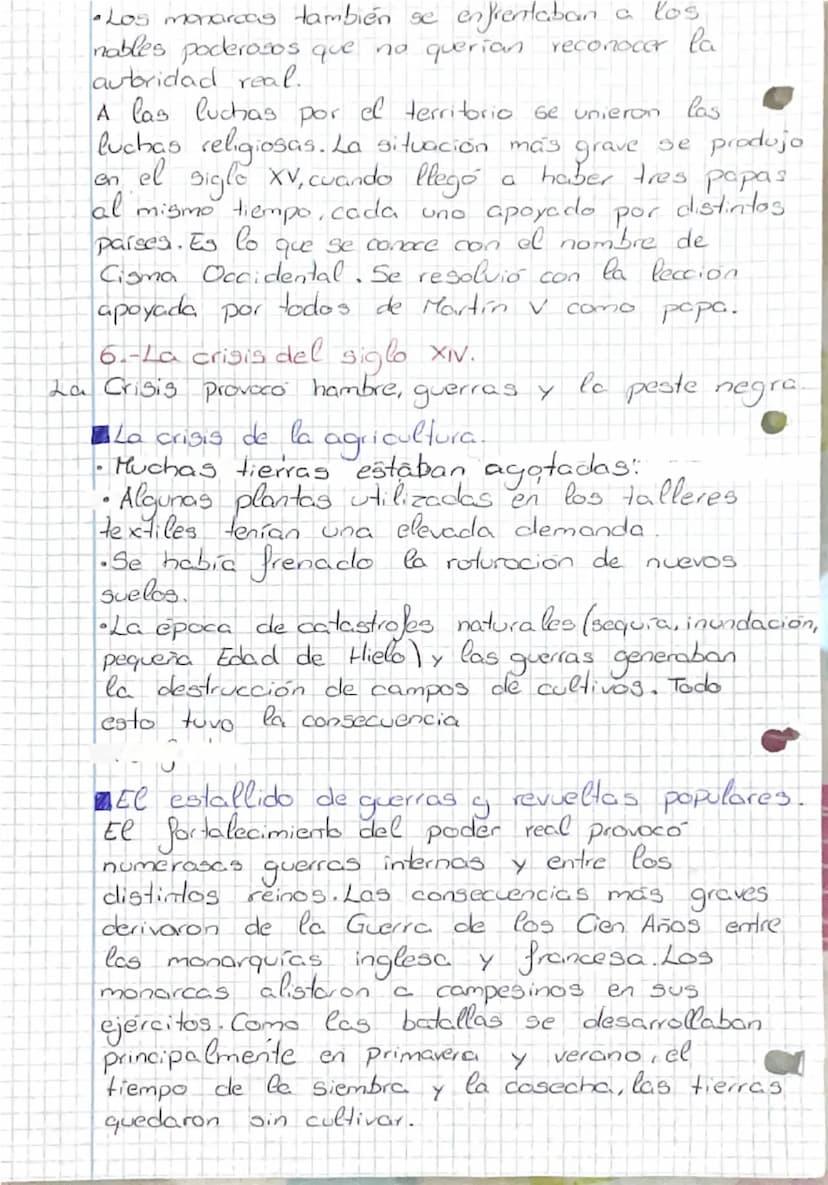 •Los monarcas también se enfrentaban a los
nobles poderosos que no querían reconocer la
autoridad real.
A las luchas por el territorio se unieron las
luchas religiosas. La situación más grave se produjo
en el siglo XV, cuando llegó a haber tres papas
al mismo tiempo, cada uno apoyado por distintos
países. Es lo que se conoce con el nombre de
Cisma Occidental. Se resolvió con la lección
apoyada por todos de Martín V como papa.
6.-La crisis del siglo XIV.
La Crisis provocó hambre, guerras y la peste negra.
La crisis de la agricultura.
• Muchas tierras estaban agotadas:
• Algunas plantas utilizadas en los talleres
textiles tenían una elevada demanda.
•Se había frenado la roturación de nuevos
suelos.
•La época de catastrofes naturales (sequía, inundación,
pequeña Edad de Hielo) y las guerras generaban
la destrucción de campos de cultivos. Todo
esto tuvo la consecuencia
El estallido de guerras y revueltas populares.
El fortalecimiento del poder real provocó
numerosas guerras internas y entre los
distintos reinos. Las consecuencias más graves
derivaron de la Guerra de los Cien Años entre
las monarquías inglesa y francesa. Los
monarcas alistaron a campesinos en sus
ejércitos. Como las batallas se desarrollaban
principalmente en primavera y verano, el
tiempo de la siembra y la cosecha, las tierras
quedaron sin cultivar.